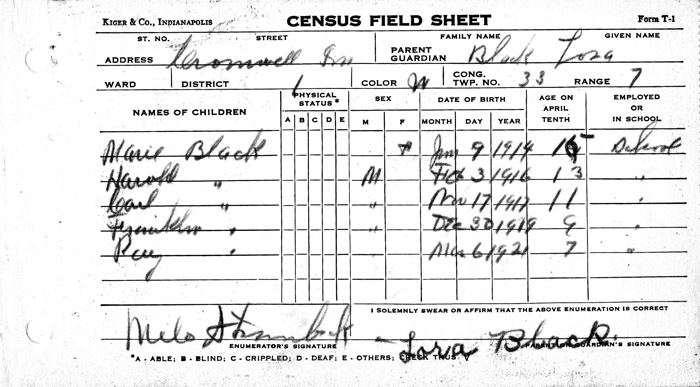 KIGER & CO., INDIANAPOLIS CENSUS FIELD SHEET Form T-1
ST. NO. STREET FAMILY NAME GIVEN NAME
ADDRESS Cromwell Ind PARENT GUARDIAN Black Losa
WARD DISTRICT 1 COLOR W CONG. TWP. NO. 33 RANGE 7
NAMES OF CHILDREN PHYSICAL STATUS* SEX DATE OF BIRTH AGE ON APRIL TENTH EMPLOYED OR IN SCHOOL
A B C D E M F MONTH DAY YEAR
Marie Black F Jan 9 1914 15 School
Harold " M Feb 3 1916 13 "
Carl " " Nov 17 1917 11 "
Franklin " " Dec 30 1919 9 "
Ray " " Mar 6 1921 7 "
I SOLEMNLY SWEAR OR AFFIRM THAT THE ABOVE ENUMERATION IS CORRECT
Black
ENUMERATOR'S SIGNATURE PARENT OR GUARDIAN'S SIGNATURE
*A - ABLE; B - BLIND; C - CRIPPLED; D - DEAF; E - OTHERS; CHECK THUS